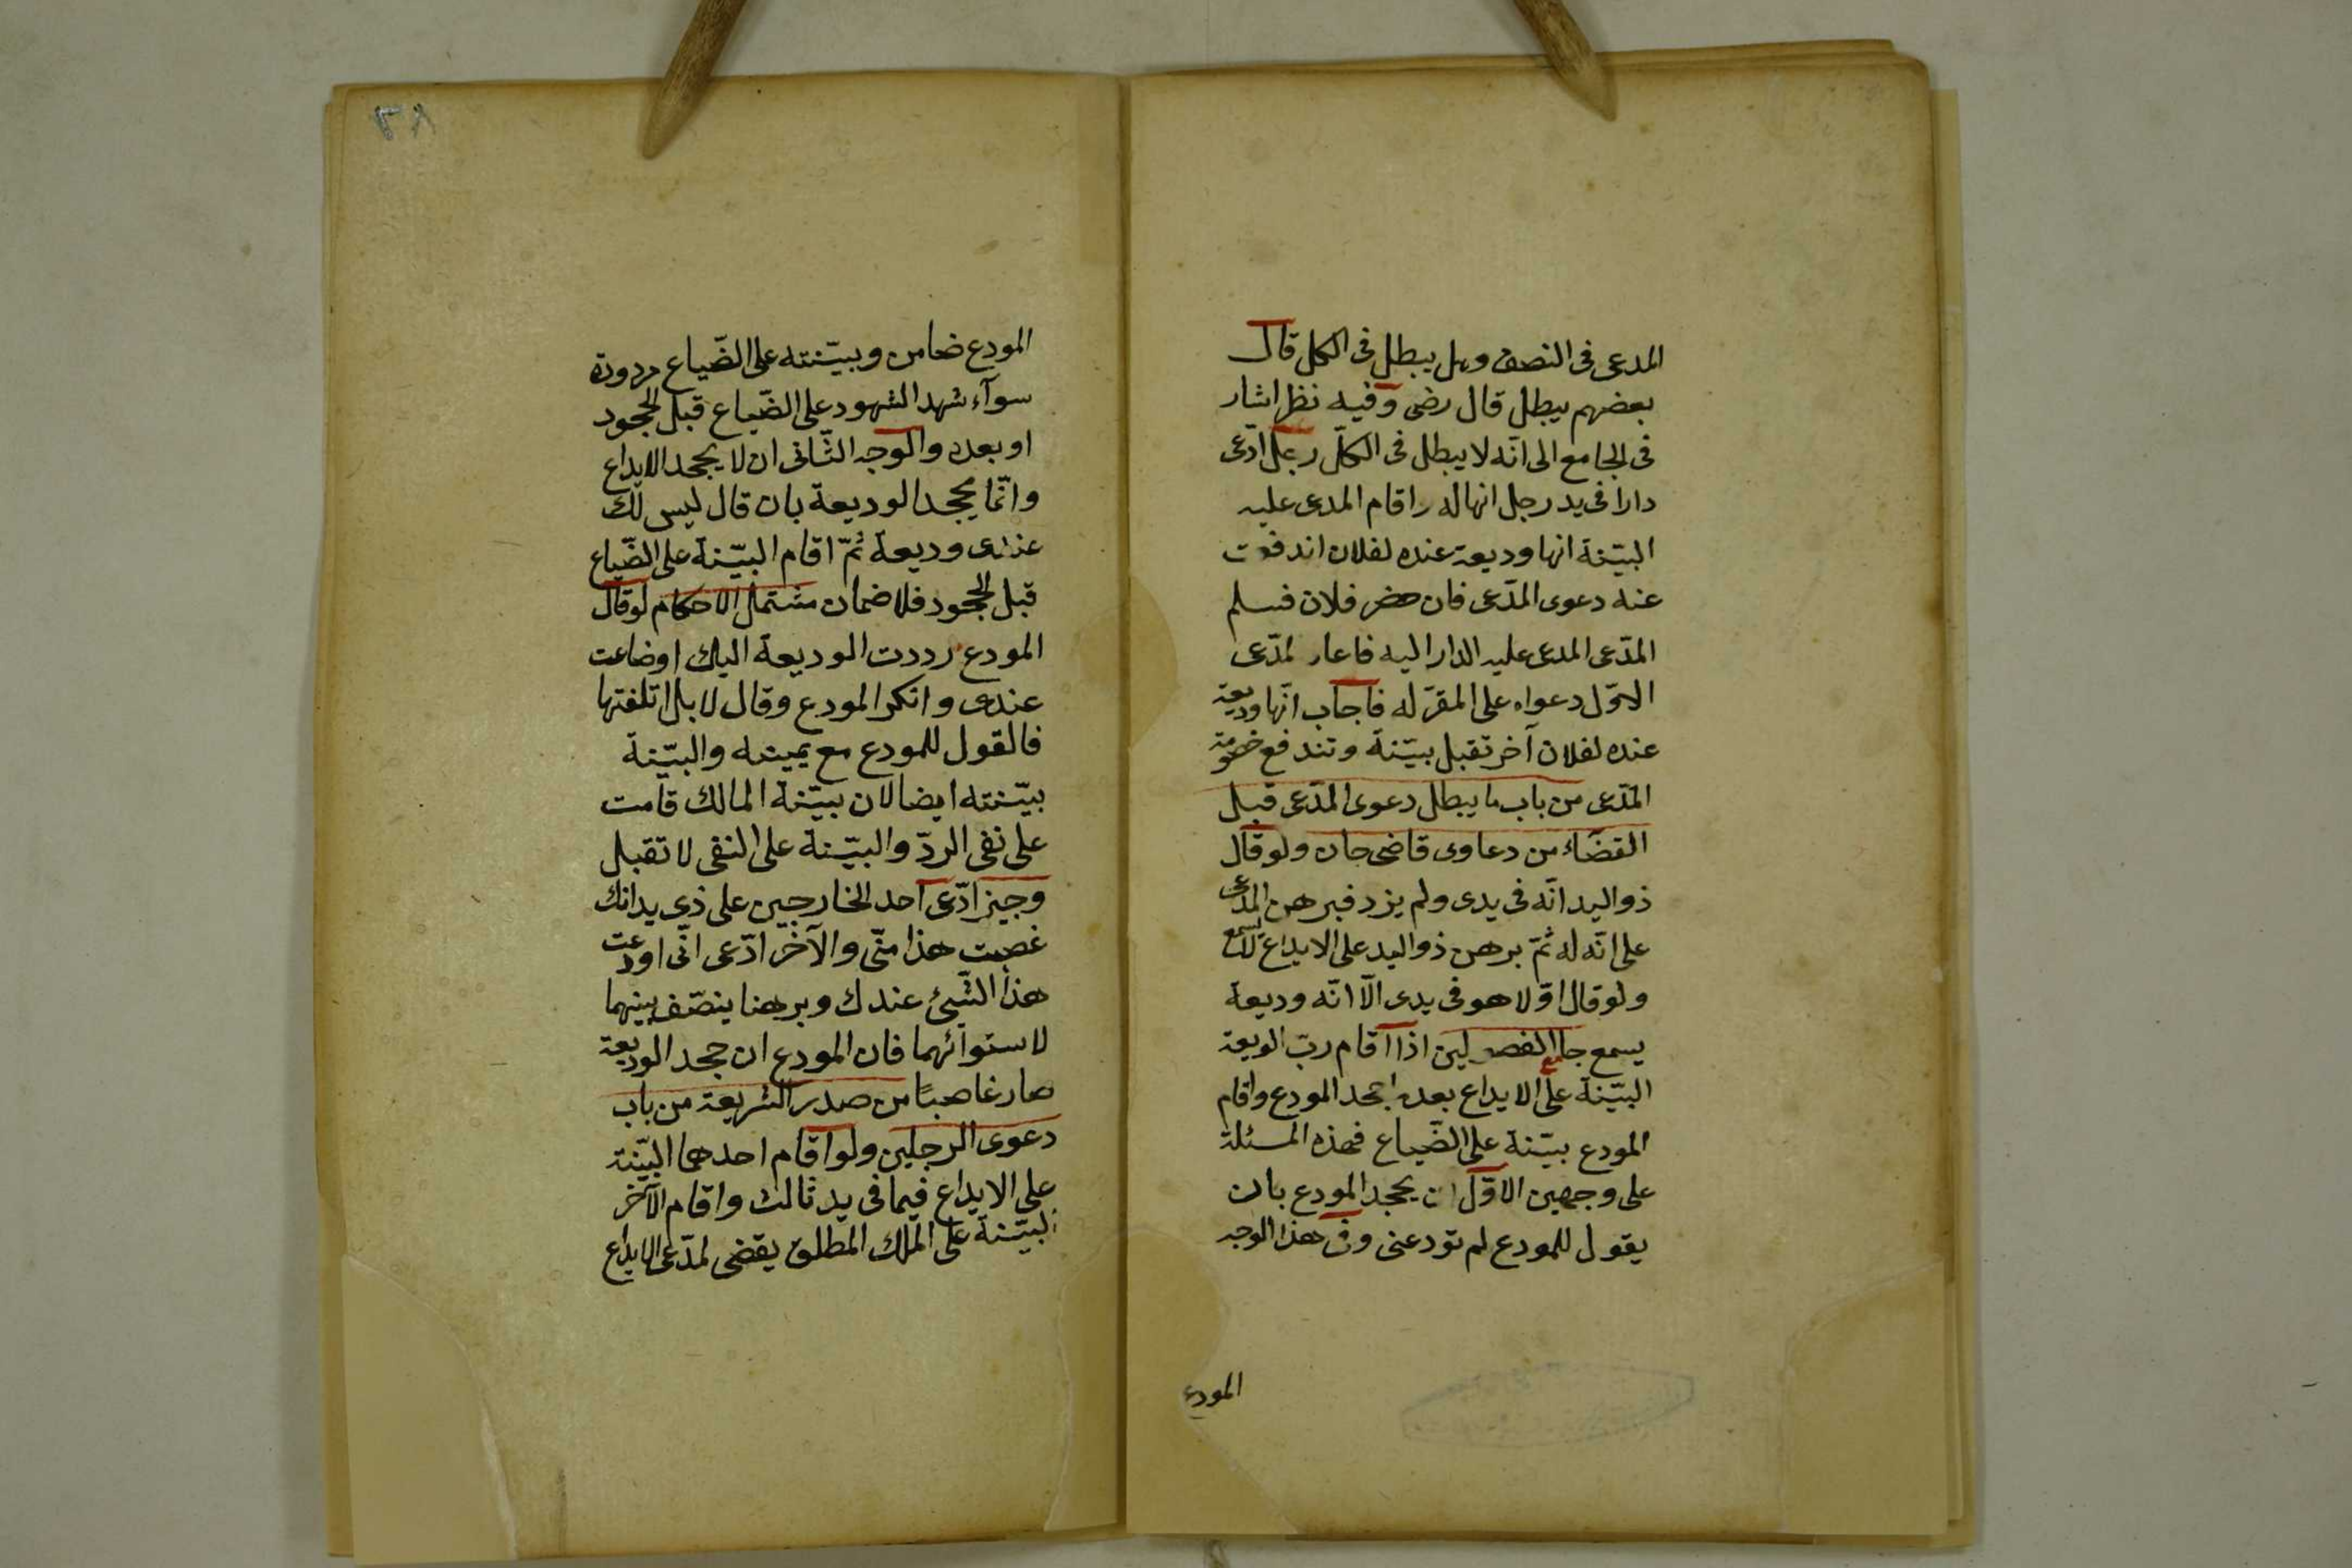 المدعى فى النصف وهل يبطل فى الكل قال
بعضهم يبطل قال رضى وفيه نظر اشار
فى الجامع الى انّه لا يبطل فى الكلّ رجل ادّعى
دارا فى يد رجل انها له واقام المدعى عليه
البيّنة انها وديعة عنده لفلان اندفعت
عنه دعوى المدّعى فان حضر فلان فسلم
المدّعى المدعى عليه الدار اليه فاعاد لمدّعى
الاوّل دعواه على المقرّ له فاجاب انّها وديعة
عنده لفلان آخر تقبل بيّنة وتندفع خصومة
المدّعى من باب ما يبطل دعوى المدّعى قبل
القضاء من دعاوى قاضى خان ولو قال
ذو اليد انّه فى يدى ولم يزد فبرهن المدّعى
على انّه له ثمّ برهن ذو اليد على الايداع لا يسمع
ولو قال اوّلا هو فى يدى الّا انّه وديعة
يسمع جامع الفصولين اذا اقام ربّ الوديعة
البيّنة على الايداع بعد اجحد المودع واقام
المودع بيّنة على الضّياع فهذه المسئلة
على وجهين الاوّل ان يجحد المودع بان
يقول للمودع لم تودعنى وفى هذا الوجه
المودع
٢٨
المودع ضامن وبيّنته على الضّياع مردودة
سوآء شهد الشهود على الضّياع قبل الجحود
او بعده والوجه الثّانى ان لا يجحد الايداع
وانّما يجحد الوديعة بان قال ليس لك
عندى وديعة ثمّ اقام البيّنة على الضّياع
قبل الجحود فلا ضمان مشتمل الاحكام لو قال
المودع رددت الوديعة اليك او ضاعت
عندى وانكر المودع وقال لا بل اتلفتها
فالقول للمودع مع يمينه والبيّنة
بيّنته ايضا لان بيّنة المالك قامت
على نفى الردّ والبيّنة على النفى لا تقبل
وجيز ادّعى احد الخارجين على ذى يد انك
غصبت هذا منّى والآخر ادّعى انّى اودعت
هذا الشّيئ عندك وبرهنا ينصّف بينهما
لاستوآئهما فان المودع ان جحد الوديعة
صار غاصبًا من صدر الشريعة من باب
دعوى الرجلين ولو اقام احدهما البيّنة
على الايداع فيما فى يد ثالث واقام الآخر
البيّنة على الملك المطلق يقضى لمدّعى الايداع